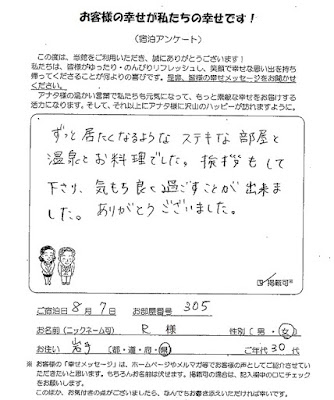 お客様の幸せが私たちの幸せです！
（宿泊アンケート）
この度は、当館をご利用いただき、誠にありがとうございます！
私たちは、皆様がゆったり・のんびりリフレッシュし、笑顔で幸せな思い出を持ち
帰ってくださることが何よりの喜びです。是非、皆様の幸せメッセージをお聞かせ
ください。
アナタ様の温かい言葉で私たちも元気になって、もっと素敵な幸せをお届けする
活力になります。そして、それ以上にアナタ様に沢山のハッピーが訪れますように。
ずっと居たくなるような ステキな 部屋と
温泉とお料理でした。 挨拶もして
下さり、気もち良く過ごすことが出来ま
した。ありがとうございました。
掲載可
ご宿泊日 8 月 7 日 お部屋番号 305
お名前（ニックネーム可） R 様 性別（ 男 ・ 女 ）
お住い 岩手 （都・道・府・県） ご年代 30 代
※ お客様の「幸せメッセージ」は、ホームページやメルマガ等でお客様の声としてご紹介させてい
ただきたいと思います。もちろんお名前は伏せます。掲載可の場合は、記入欄中の口にチェック
をお願いします。
このほか、お気付きの点がございましたら、なんでもお書き添えいただければ幸いです。